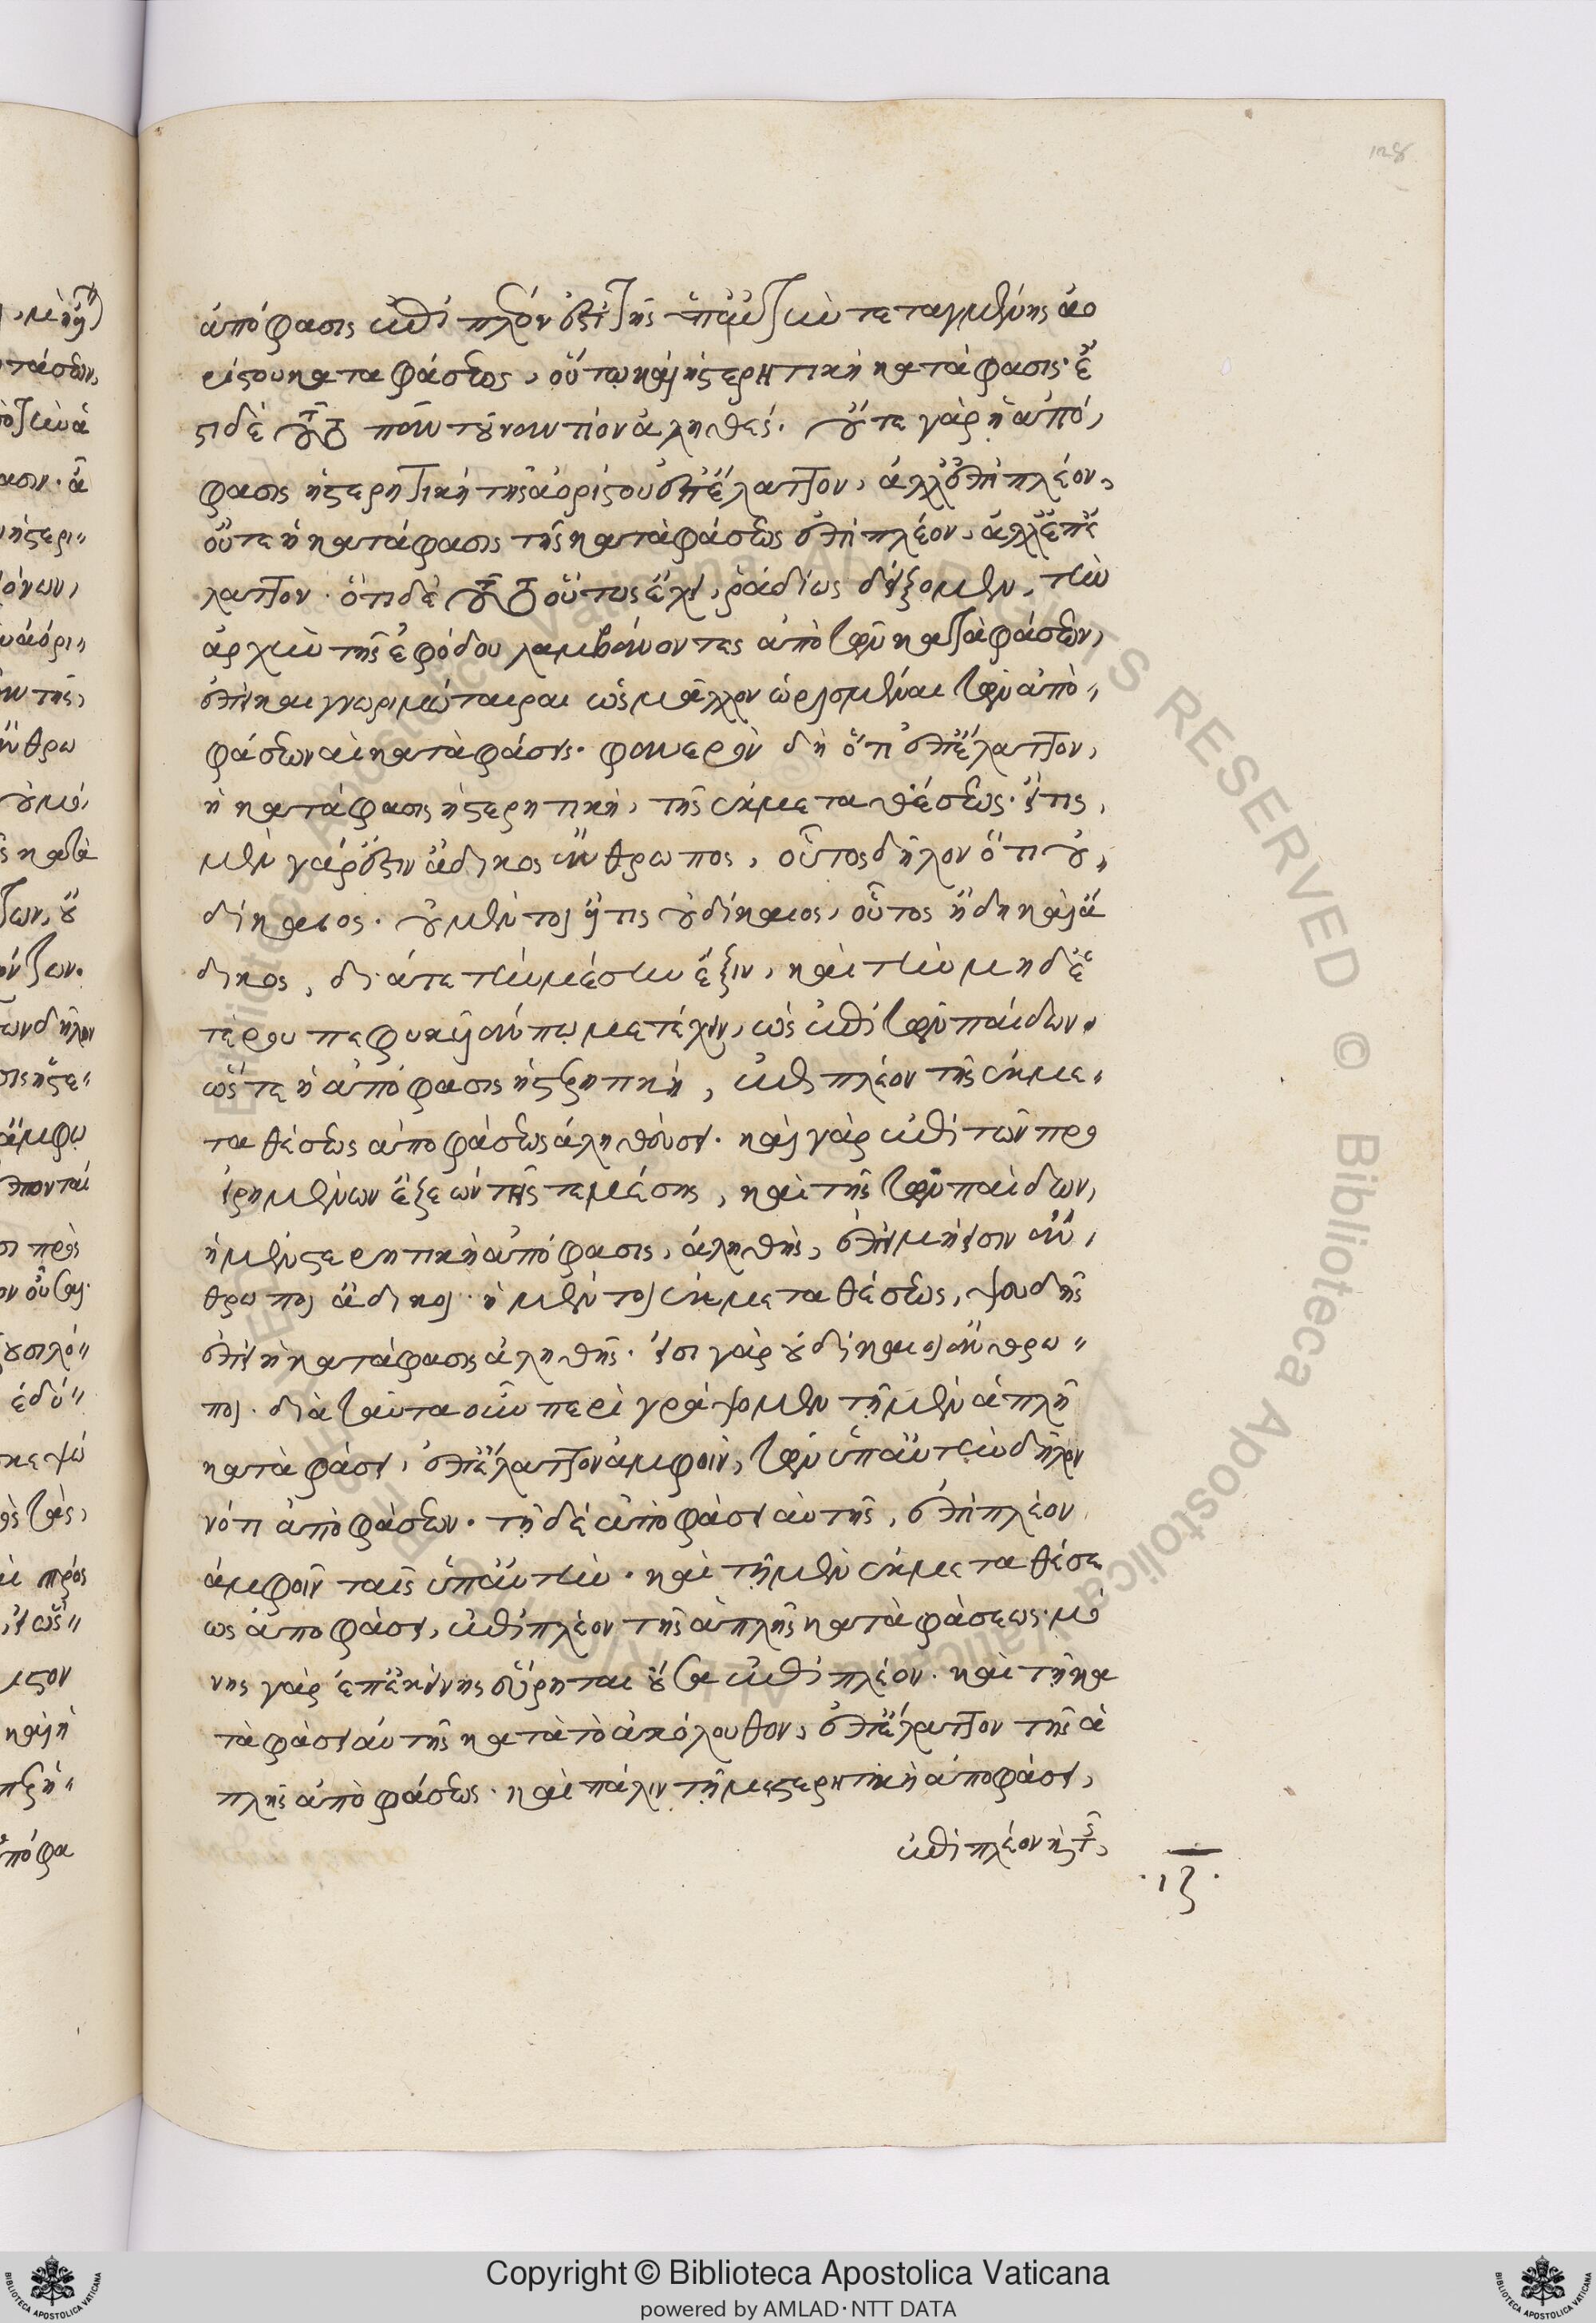 128
ἀπόφασις ἐπὶ πλέον ἐστὶ τῆς ὑπ' αὐτὴν τεταγμένης ἀο
ρίστου καταφάσεως, οὕτω καὶ ἡ στερητικὴ κατάφασις· ἔ
στι δὲ τοῦτο πᾶν τοὐναντίον ἀληθές. οὔτε γὰρ ἡ ἀπό,
φασις ἡ στερητικὴ τῆς ἀορίστου ἐπ' ἔλαττον, ἀλλ' ἐπὶ πλέον,
οὔτε ἡ κατάφασις τῆς καταφάσεως ἐπὶ πλέον, ἀλλ' ἐπ' ἔ
λαττον. ὅτι δὲ τοῦτο οὕτως ἔχει, ῥαδίως δείξομεν, τὴν
ἀρχὴν τῆς ἐφόδου λαμβάνοντες ἀπὸ τῶν καταφάσεων,
ἐπεὶ καὶ γνωριμώτεραι ὡς μᾶλλον ὡρισμέναι τῶν ἀπο"
φάσεων αἱ καταφάσεις. φανερὸν δὴ ὅτι ἐπ' ἔλαττον,
ἡ κατάφασις ἡ στερητικὴ, τῆς ἐκ μεταθέσεως. εἴ τις,
μὲν γάρ ἐστιν ἄδικος ἄνθρωπος, οὗτος δῆλον ὅτι οὐ,
δίκαιος. οὐ μέντοι εἴ τις οὐ δίκαιος, οὗτος ἤδη καὶ ἄ
δικος, διά τε τὴν μέσην ἕξιν, καὶ τὴν μηδε
τέρου πεφυκέναι πω μετέχειν, ὡς ἐπὶ τῶν παίδων.
ὥστε ἡ ἀπόφασις ἡ στερητικὴ, ἐπὶ πλέον τῆς ἐκ με"
ταθέσεως ἀποφάσεως ἀληθεύσει. καὶ γὰρ ἐπὶ τῶν προ
ειρημένων ἕξεων τῆς τε μέσης, καὶ τῆς τῶν παίδων,
ἡ μὲν στερητικὴ ἀπόφασις, ἀληθὴς, ἐπεὶ μή εἰσιν ἄν,
θρωποι ἄδικοι. ἡ μέντοι ἐκ μεταθέσεως, ψευδὴς
ἐπεὶ ἡ κατάφασις ἀληθής. εἰσὶ γὰρ οὐ δίκαιοι ἄνθρω"
ποι. διὰ ταῦτα οὖν περιγράψομεν τῇ μὲν ἁπλῇ
καταφάσει, ἐπ' ἔλαττον ἀμφοῖν, τῶν ὑπ' αὐτὴν δῆλον
ότι ἀποφάσεων. τῇ δὲ ἀποφάσει αὐτῆς, ἐπὶ πλέον
ἀμφοῖν ταῖς ὑπ' αὐτὴν. καὶ τῇ μὲν ἐκ μεταθέσε
ως ἀποφάσει, ἐπὶ πλέον τῆς ἁπλῆς καταφάσεως. μό
νης γὰρ ἐπ' ἐκείνης εὕρηται οὖσα ἐπὶ πλέον. καὶ τῇ κα
ταφάσει αὐτῆς κατὰ τὸ ἀκόλουθον, ἐπ' ἔλαττον τῆς ἁ
πλῆς ἀποφάσεως. καὶ πάλιν τῇ μὲν στερητικῇ ἀποφάσει,
ἐπὶ πλέον
.ιζ.
Copyright © Biblioteca Apostolica Vaticana
powered by AMLAD·NTT DATA